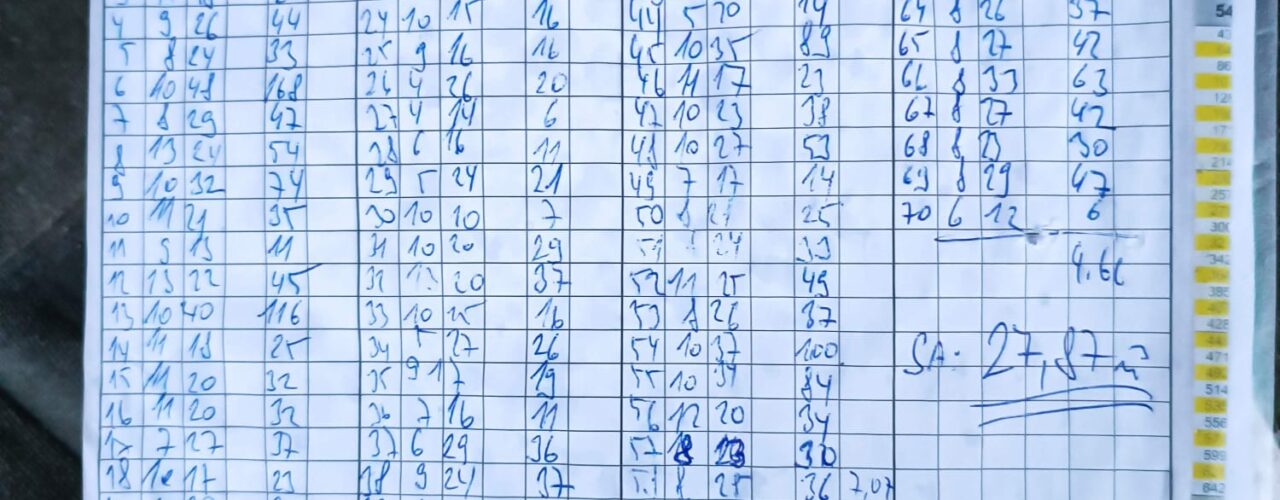 4 9 26 44 24 10 15 16 44 5 20 14 64 8 26 37
5 8 24 33 25 9 16 16 45 10 35 89 65 8 27 42
6 10 48 168 26 4 26 20 46 11 17 23 66 8 33 63
7 8 29 47 27 4 14 6 47 10 23 38 67 8 27 42
8 13 24 54 28 6 16 11 48 10 27 53 68 8 23 30
9 10 32 74 29 5 24 21 49 7 17 14 69 8 29 47
10 11 21 35 30 10 10 7 50 8 21 25 70 6 12 6
11 9 13 11 31 10 20 29 51 24 33 4.66
12 13 22 45 32 13 20 37 52 11 25 49
13 10 40 116 33 10 15 16 53 8 26 37
14 11 18 25 34 5 27 26 54 10 37 100 SA: 27,87 m³
15 11 20 32 35 9 17 19 55 10 34 84
16 11 20 32 36 7 16 11 56 12 20 34
17 7 27 37 37 6 29 36 57 8 23 30
18 10 17 23 38 9 24 37 8 25 36 7,07